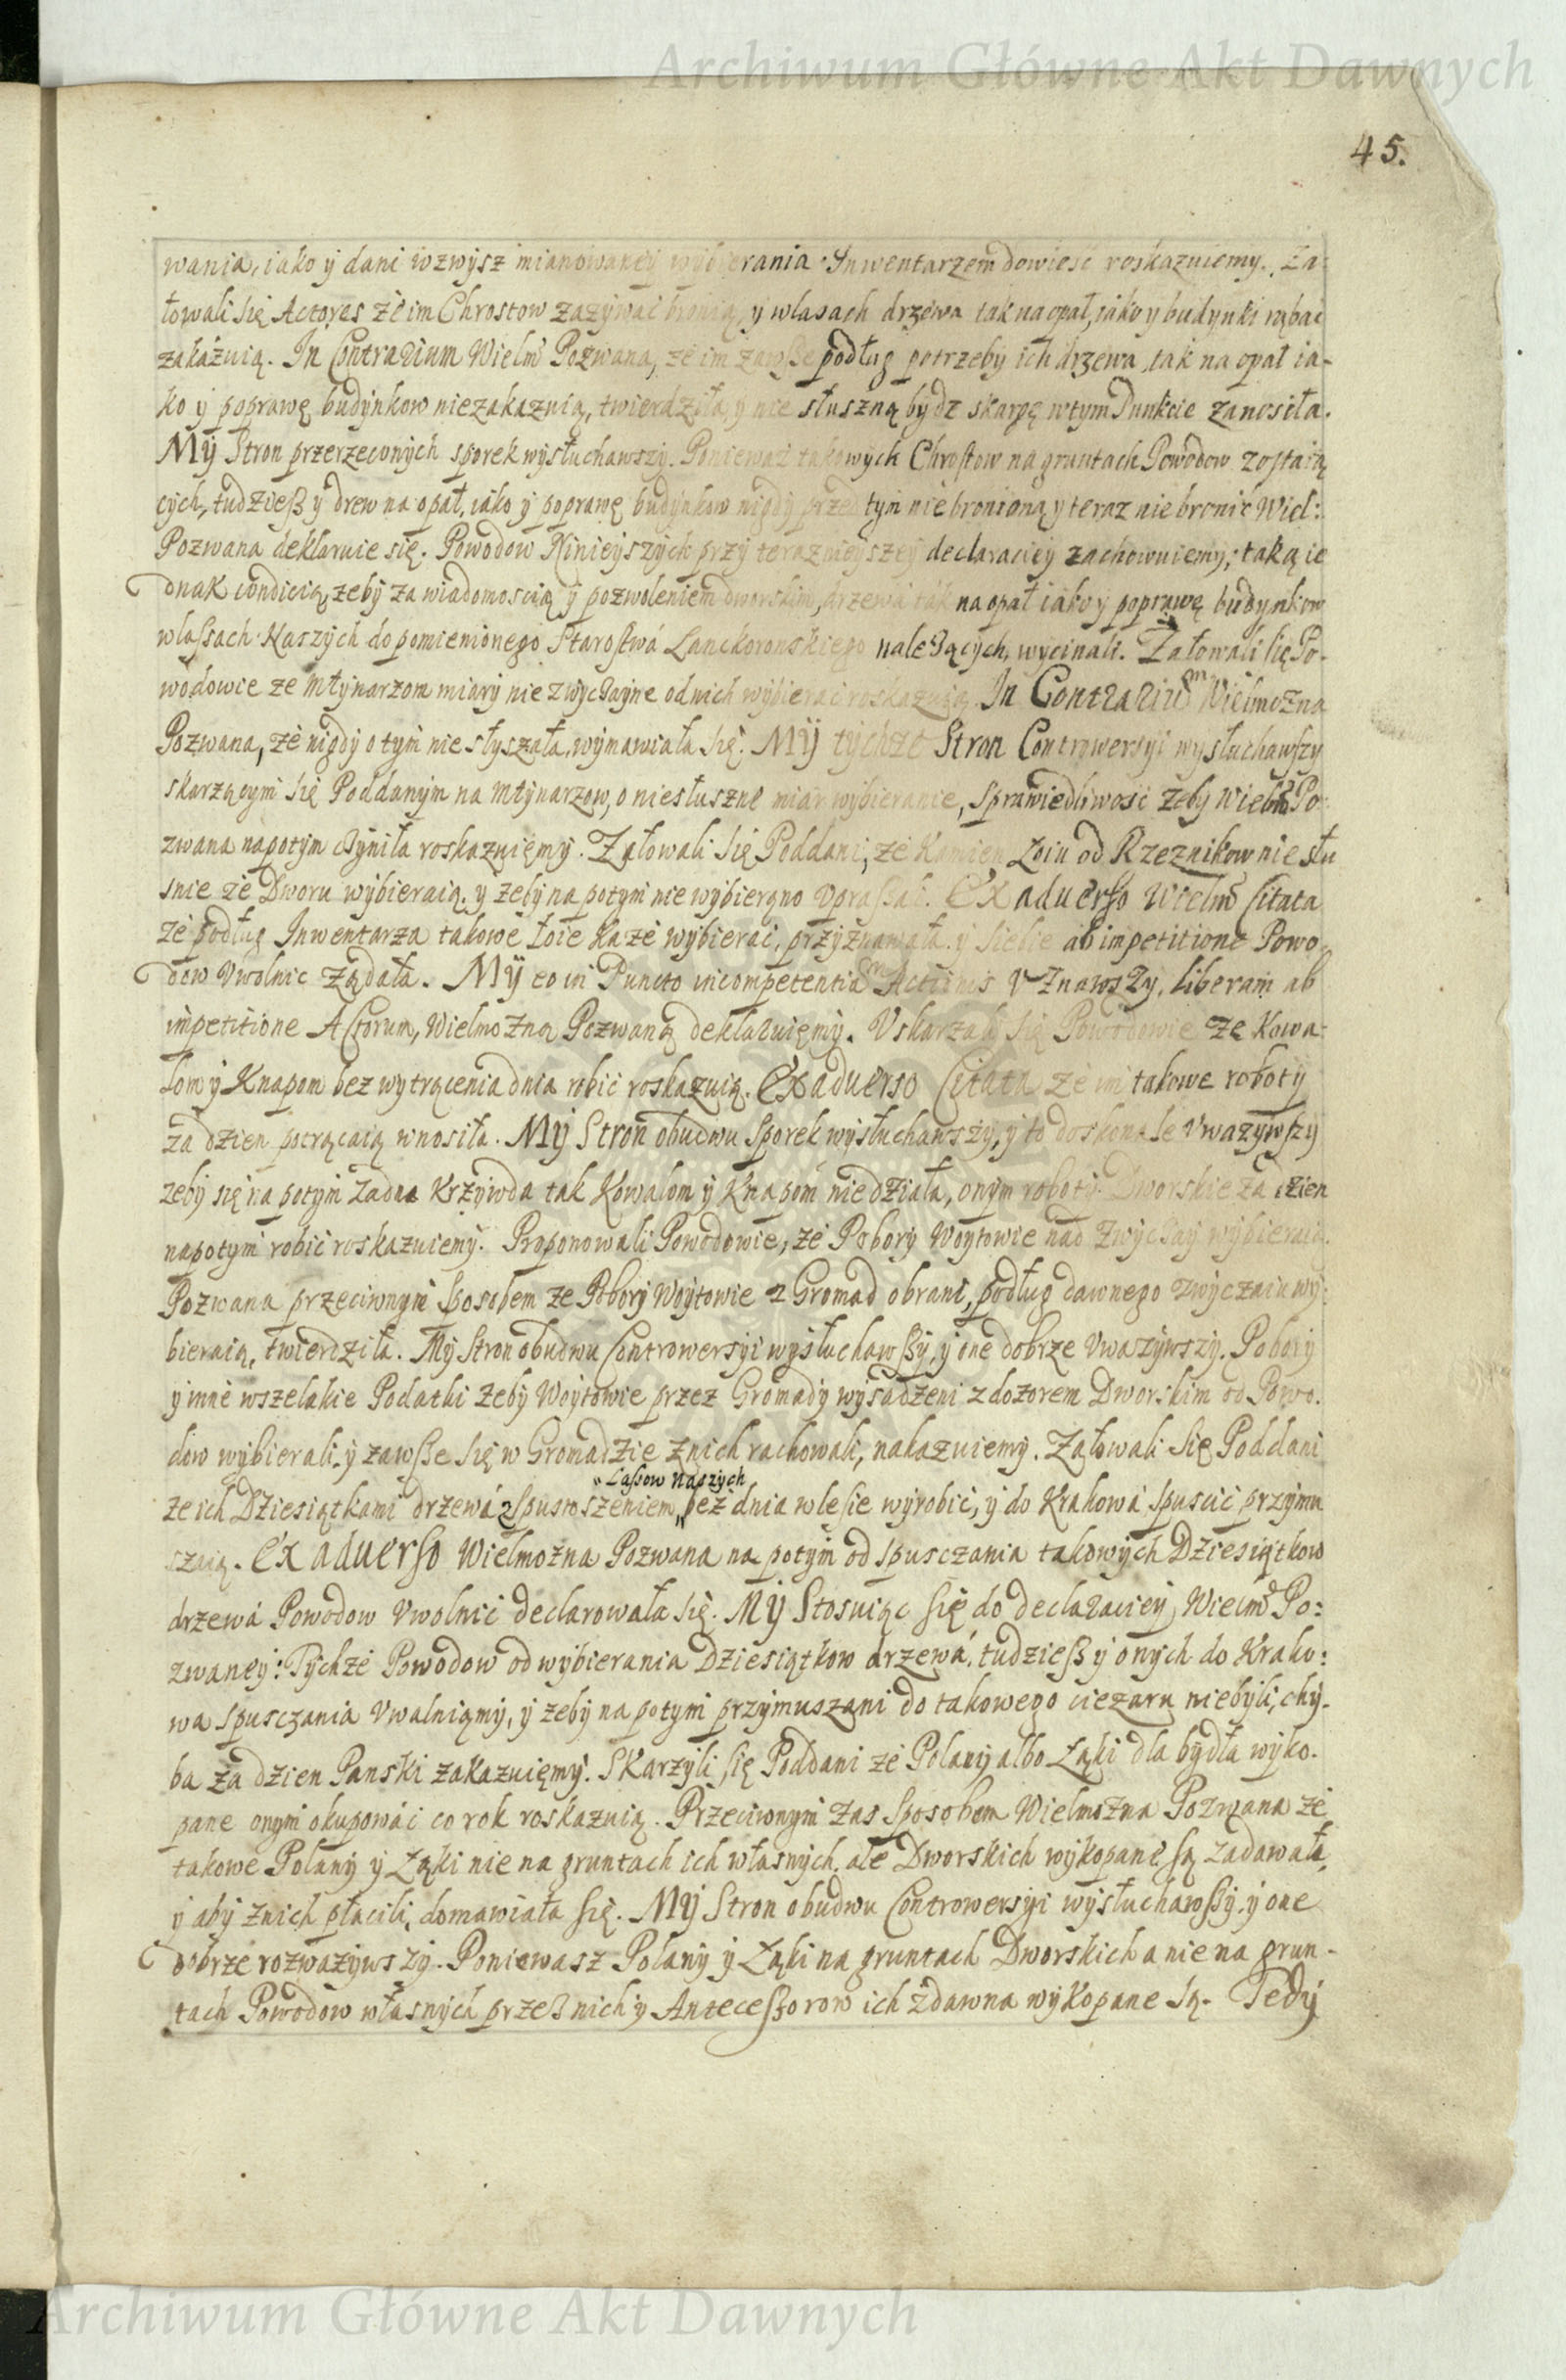 Archiwum Główne Akt Dawnych
45.
wania, iako y dani wzwysz mianowaney wybierania Inwentarzem dowiesć roskazuiemy. Ża-
łowali się Actores że im Chrostow zazywać bronią, y wlasach drzewa tak na opał, iako y budynki rąbać
zakazuią. In Contrarium Wielm Pozwana, że im zawsze podług potrzeby ich drzewa tak na opał ia-
ko y poprawę budynkow niezakazuią, twierdziła, y nie słuszną bydz skargę wtym Punkcie zanosiła.
My Stron przerzeconych sporek wysłuchawszy. Ponieważ takowych Chrostow na gruntach Powodow zostaią
cych, tudzieß y drew na opał, iako y poprawę budynkow nigdy przed tym nie broniono y teraz nie bronić Wiel:
Pozwana deklaruie się. Powodow Ninieyszych przy teraznieyszey declaraciey zachowuiemy; taką ie
dnak condicią, żeby za wiadomoscią y pozwoleniem dworskim, drzewa tak na opał iako y poprawę budynkow
wlassach Naszych do pomienionego Starostwá Lanckoronskiego należących, wycinali. Żałowali się Po-
wodowie ze Młynarzom miary nie zwyczayne od nich wybierać roskazuią. In Contrarium Wielmożna
Pozwana, że nigdy o tym nie słyszała, wymawiała się. My tychże Stron Controwersyi wysłuchawszy
skarzącym się Poddanym na Młynarzow, o niesłuszne miar wybieranie, sprawiedliwosć żeby Wielm Po-
zwana napotym czyniła roskazuięmy. Żałowali się Poddani, że Kamien Łoiu od Rzeznikow niesłu
snie ze Dworu wybieraią, y żeby na potym nie wybierano upraszali. Ex aduerso Wielm Citata
że podług Inwentarza takowe łoie każe wybierać, przyznawała y siebie ab impetitione Powo
dow Uwolnic żądała. My eo in Puncto incompetentiam Actionis Uznawszy, liberam ab
impetitione Actorum, Wielmożną Pozwaną deklaruięmy. Uskarzali się Powodowie ze Kowa-
lom y Knapom bez wytrącenia dnia robić roskazuią. Ex aduerso Citata że im takowe roboty
za dzien potrącaią wnosiła. My Stron obudwu sporek wysłuchawszy, y to doskonale Uwazywszy
żeby się na potym żadna krzywda tak Kowalom y Knapom nie działa, onym roboty Dworskie za dzien
napotym robić roskazuiemy. Proponowali Powodowie, że Pobory Woytowie nad zwyczay wybieraią.
Pozwana przeciwnym sposobem ze Pobory Woytowie z Gromad obrani, podług dawnego zwyczaiu wy:
bieraią, twierdziła. My Stron obudwu Controwersyi wysłuchawßy, y one dobrze Uwazywszy. Pobory
y inne wszelakie Podatki żeby Woytowie przez Gromady wysadzeni z dozorem Dworskim od Powo-
dow wybierali, y zawsse się w Gromadzie znich rachowali, nakazuiemy. Żałowali się Poddani
Lassow naszych
że ich Dziesiątkami drzewá z spustoszeniem, bez dnia wlesie wyrobić, y do Krakowá spuscić przymu
szaią. Ex aduerso Wielmożna Pozwana na potym od spusczania takowych Dziesiątkow
drzewá Powodow Uwolnić declarowała się. My Stosuiąc się do declaraciey Wielm Po:
zwaney: Tychże Powodow od wybierania Dziesiątkow drzewá, tudzieß y onych do Krako:
wa spusczania Uwalniamy, y żeby na potym przymuszani do takowego ciezaru niebyli, chy-
ba za dzien Panski zakazuięmy. Skarżyli się Poddani że Polany albo Łąki dla bydła wyko-
pane onym okupowáć co rok roskazuią. Przeciwnym zas sposobem Wielmożna Pozwana że
takowe Polany y Łąki nie na gruntach ich własnych, ale Dworskich wykopane są zadawała,
y aby znich płacili, domawiała się. My Stron obudwu Controwersyi wysłuchawßy, y one
dobrze rozwazywszy. Poniewasz Polany y Łąki na gruntach Dworskich a nie na grun-
tach Powodow własnych przeß nich y Antecessorow ich zdawna wykopane są. Tedy
Archiwum Główne Akt Dawnych